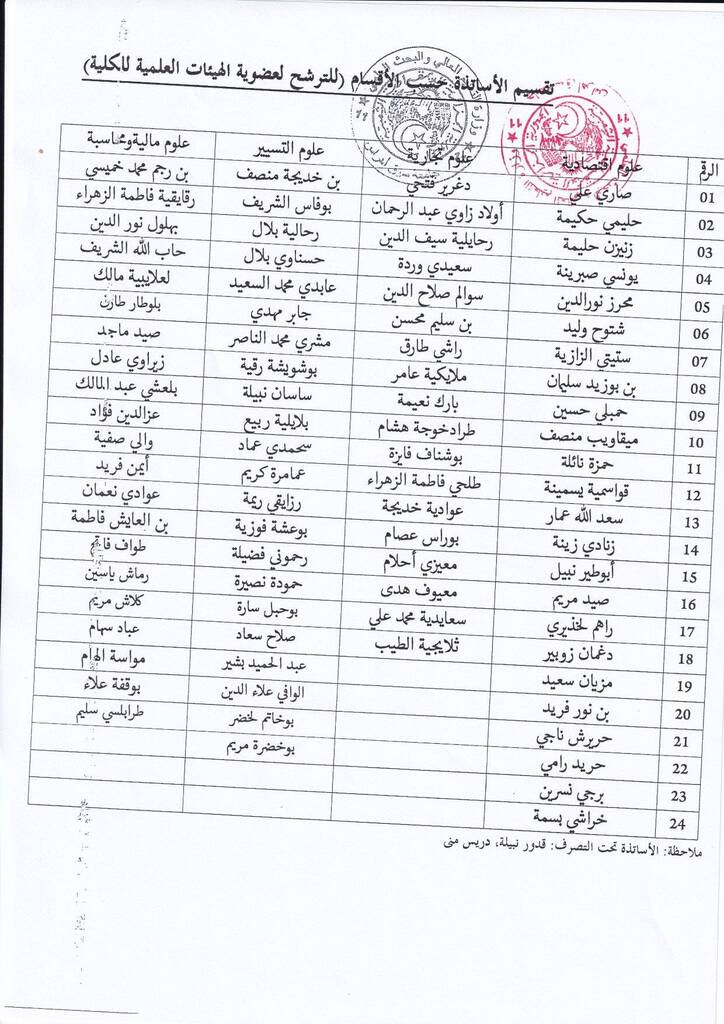 تقسيم الأساتذة حسب الأقسام (للترشح لعضوية الهيئات العلمية للكلية)
الرقم علوم اقتصادية علوم تجارية علوم التسيير علوم مالية ومحاسبة
01 صاري علي دغرير فتحي بن خديجة منصف بن رجم محمد خميسي
02 حليمي حكيمة أولاد زاوي عبد الرحمان بوفاس الشريف رقايقية فاطمة الزهراء
03 زنيزن حليمة رحايلية سيف الدين رحالية بلال بهلول نور الدين
04 يونسي صبرينة سعيدي وردة حسناوي بلال حاب الله الشريف
05 محرز نورالدين سوالم صلاح الدين عابدي محمد السعيد لعلايبية مالك
06 شتوح وليد بن سليم محسن جابر مهدي بلوطار طارق
07 ستيتي الزازية راشي طارق مشري محمد الناصر صيد ماجد
08 بن بوزيد سليمان ملايكية عامر بوشويشة رقية زيراوي عادل
09 حمبلي حسين بارك نعيمة ساسان نبيلة بلعشي عبد المالك
10 ميقاويب منصف طرادخوجة هشام بلايلية ربيع عزالدين فؤاد
11 حمزة نائلة بوشناف فايزة سحمدي عماد والي صفية
12 قواسمية يسمينة طلحي فاطمة الزهراء عمامرة كريم أيمن فريد
13 سعد الله عمار عوادية خديجة رزايقي ريمة عوادي نعمان
14 زنادي زينة بوراس عصام بوعشة فوزية بن العايش فاطمة
15 أبوطير نبيل معيزي أحلام رحموني فضيلة طواف فاتح
16 صيد مريم معيوف هدى حمودة نصيرة رماش ياسين
17 راهم لخذيري سعايدية محمد علي بوحبل سارة كلاش مريم
18 دغمان زوبير ثلايجية الطيب صلاح سعاد عباد سهام
19 مزيان سعيد عبد الحميد بشير مواسة إلهام
20 بن نور فريد الوافي علاء الدين بوقفة علاء
21 حريرش ناجي بوخاتم لخضر طرابلسي سليم
22 حريد رامي بوخضرة مريم
23 برجي نسرين
24 خراشي بسمة
ملاحظة: الأساتذة تحت التصرف: قدور نبيلة، دريس منى